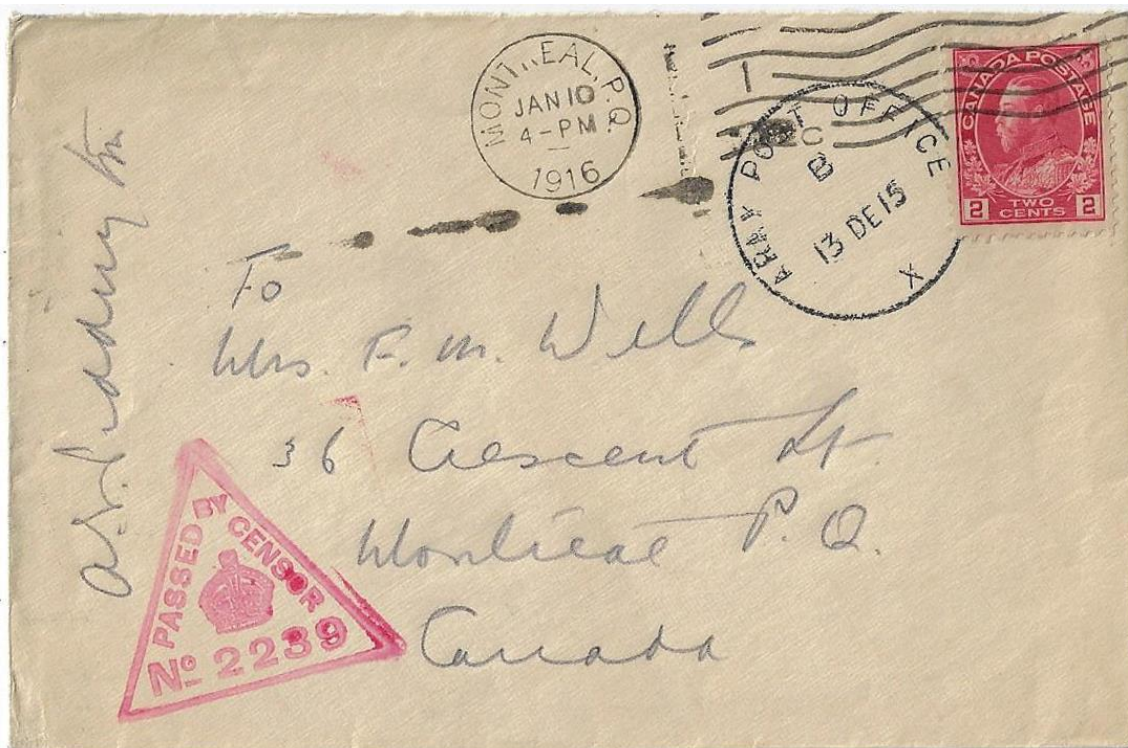 MONTREAL, P.Q.
JAN 10
4-PM
1916
ARMY POST OFFICE
B
13 DE 15
X
CANADA POSTAGE
2 TWO CENTS 2
To
Mrs. F. M. Wells
36 Crescent St.
Montreal P. Q.
Canada
PASSED BY CENSOR
No 2239